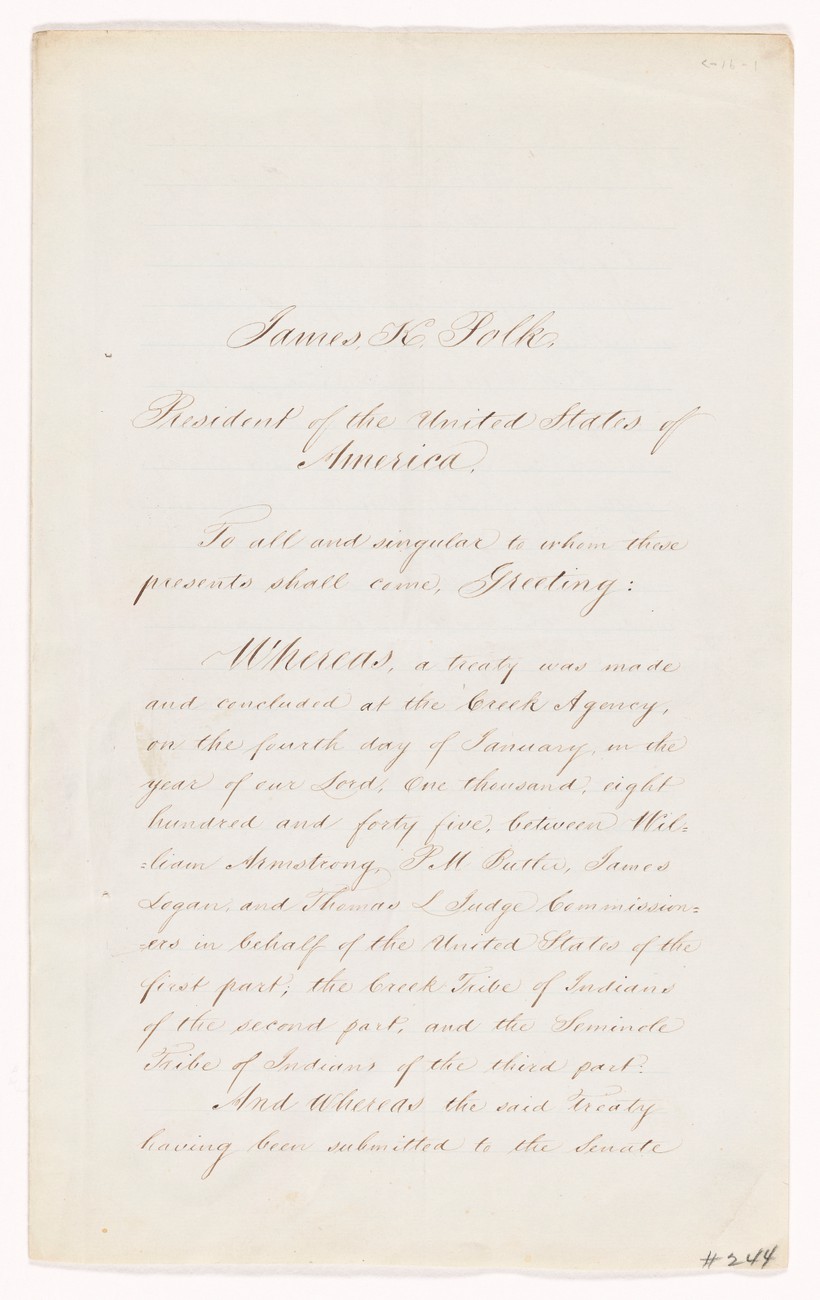 James, K. Polk,
President of the United States of
America.
To all and singular to whom these
presents shall come, Greeting:
Whereas, a treaty was made
and concluded at the Creek Agency,
on the fourth day of January, in the
year of our Lord, One thousand, eight
hundred and forty five, between Wil=
=liam Armstrong, P M Butler, James
Logan, and Thomas L Judge Commission=
=ers in behalf of the United States of the
first part; the Creek Tribe of Indians
of the second part, and the Seminole
Tribe of Indians of the third part:
And Whereas the said Treaty
having been submitted to the Senate
#244